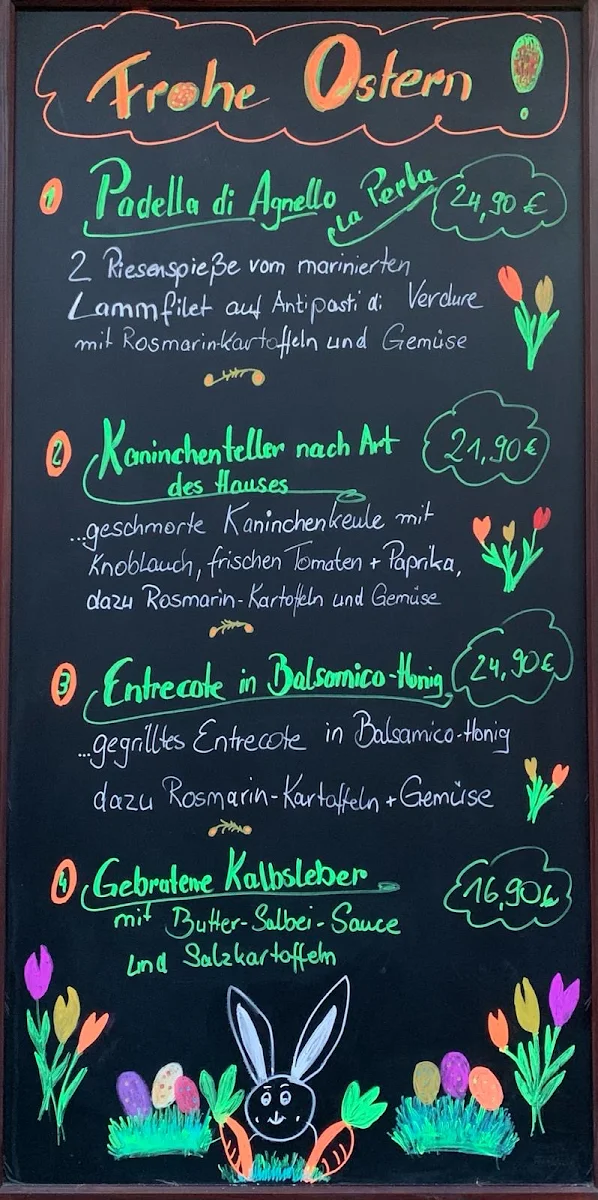 Frohe Ostern!
1 Padella di Agnello "La Perla" 24,90 €
2 Riesenspieße vom marinierten
Lammfilet auf Antipasti di Verdure
mit Rosmarin-Kartoffeln und Gemüse
2 Kaninchenteller nach Art 21,90 €
des Hauses
...geschmorte Kaninchenkeule mit
Knoblauch, frischen Tomaten + Paprika,
dazu Rosmarin-Kartoffeln und Gemüse
3 Entrecote in Balsamico-Honig 24,90 €
...gegrilltes Entrecote in Balsamico-Honig
dazu Rosmarin-Kartoffeln + Gemüse
4 Gebratene Kalbsleber 16,90 €
mit Butter-Salbei-Sauce
und Salzkartoffeln